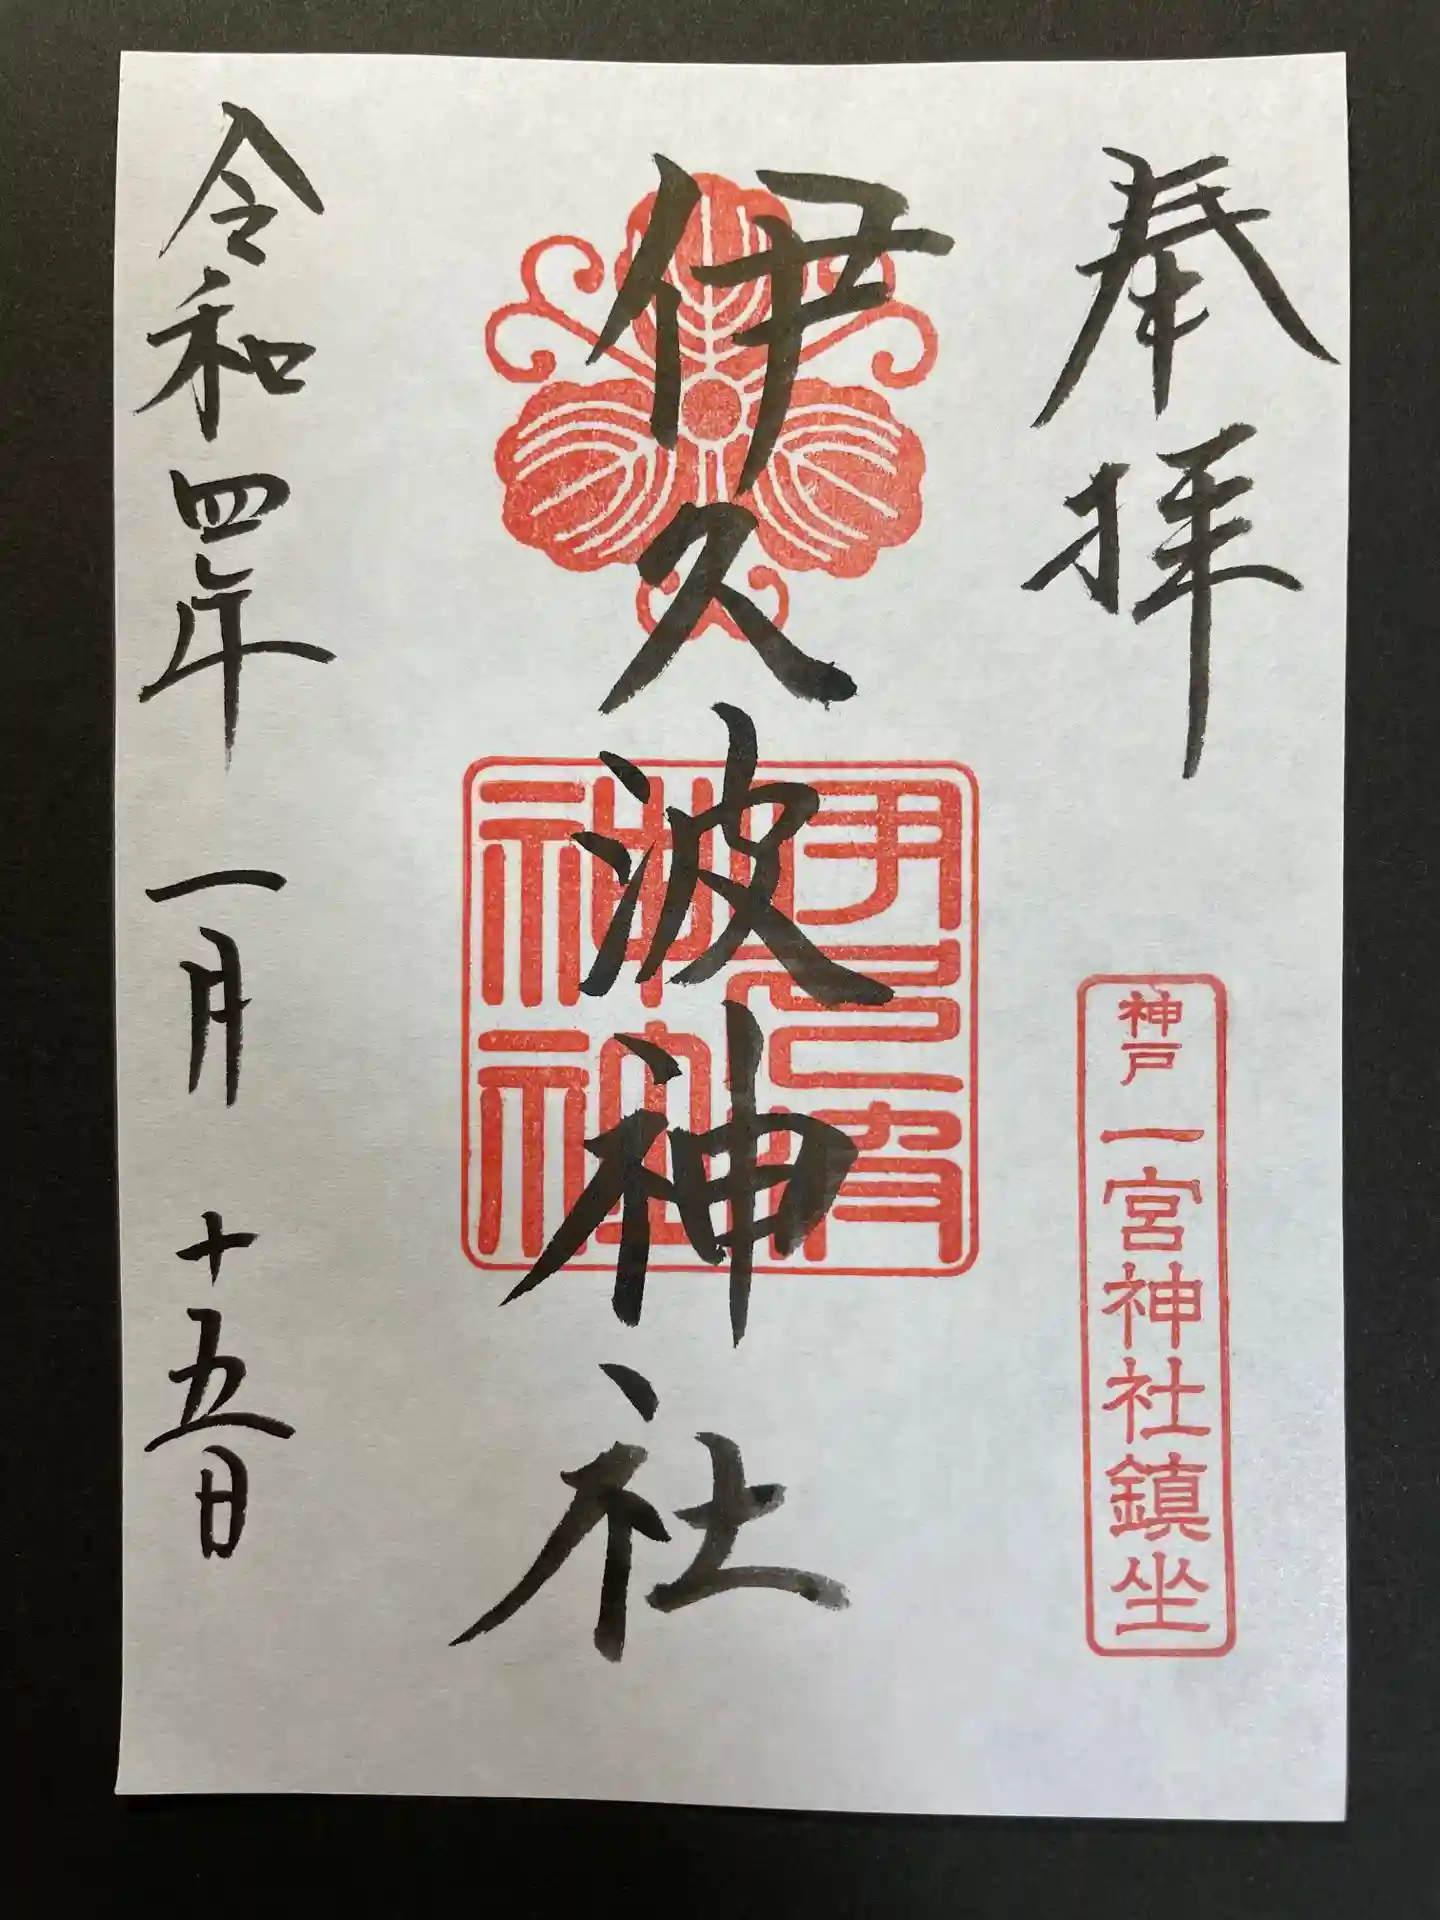 奉拝
神戸一宮神社鎮坐
伊久波神社
伊久波神社
令和四年一月十五日